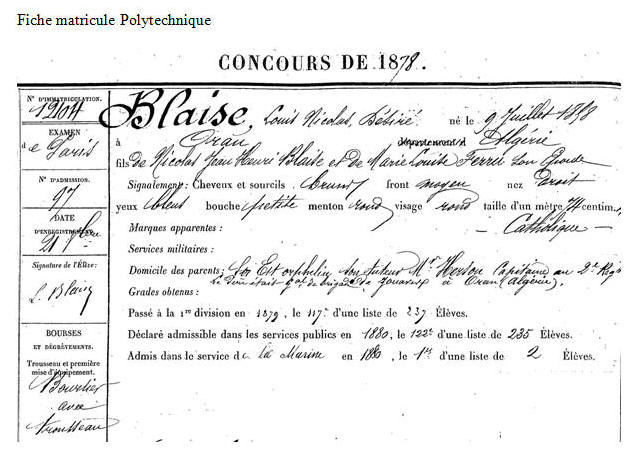 Fiche matricule Polytechnique
CONCOURS DE 1878.
N° D'IMMATRICULATION.
12104
EXAMEN
de Paris
N° D'ADMISSION.
97
DATE
D'ENREGISTREMENT.
21 8bre
Signature de l'Élève:
L. Blaise
BOURSES
ET DÉGRÈVEMENTS.
Trousseau et première
mise d'équipement.
Boursier
avec
trousseau
Blaise, Louis Nicolas, Désiré né le 9 Juillet 1858
à Oran département d Algérie
fils de Nicolas Jean Henri Blaise et de Marie Louise Ferrié son épouse
Signalement: Cheveux et sourcils bruns front moyen nez droit
yeux bleus bouche petite menton rond visage rond taille d'un mètre 74 centim.
Marques apparentes: — Catholique —
Services militaires:
Domicile des parents: Est orphelin son tuteur Mr Herson Capitaine au 2e Regt
de zouaves à Oran (Algérie).
Grades obtenus:
Passé à la 1re division en 1879, le 117e d'une liste de 237 Élèves.
Déclaré admissible dans les services publics en 1880, le 122e d'une liste de 235 Élèves.
Admis dans le service de la Marine en 1880, le 1er d'une liste de 2 Élèves.